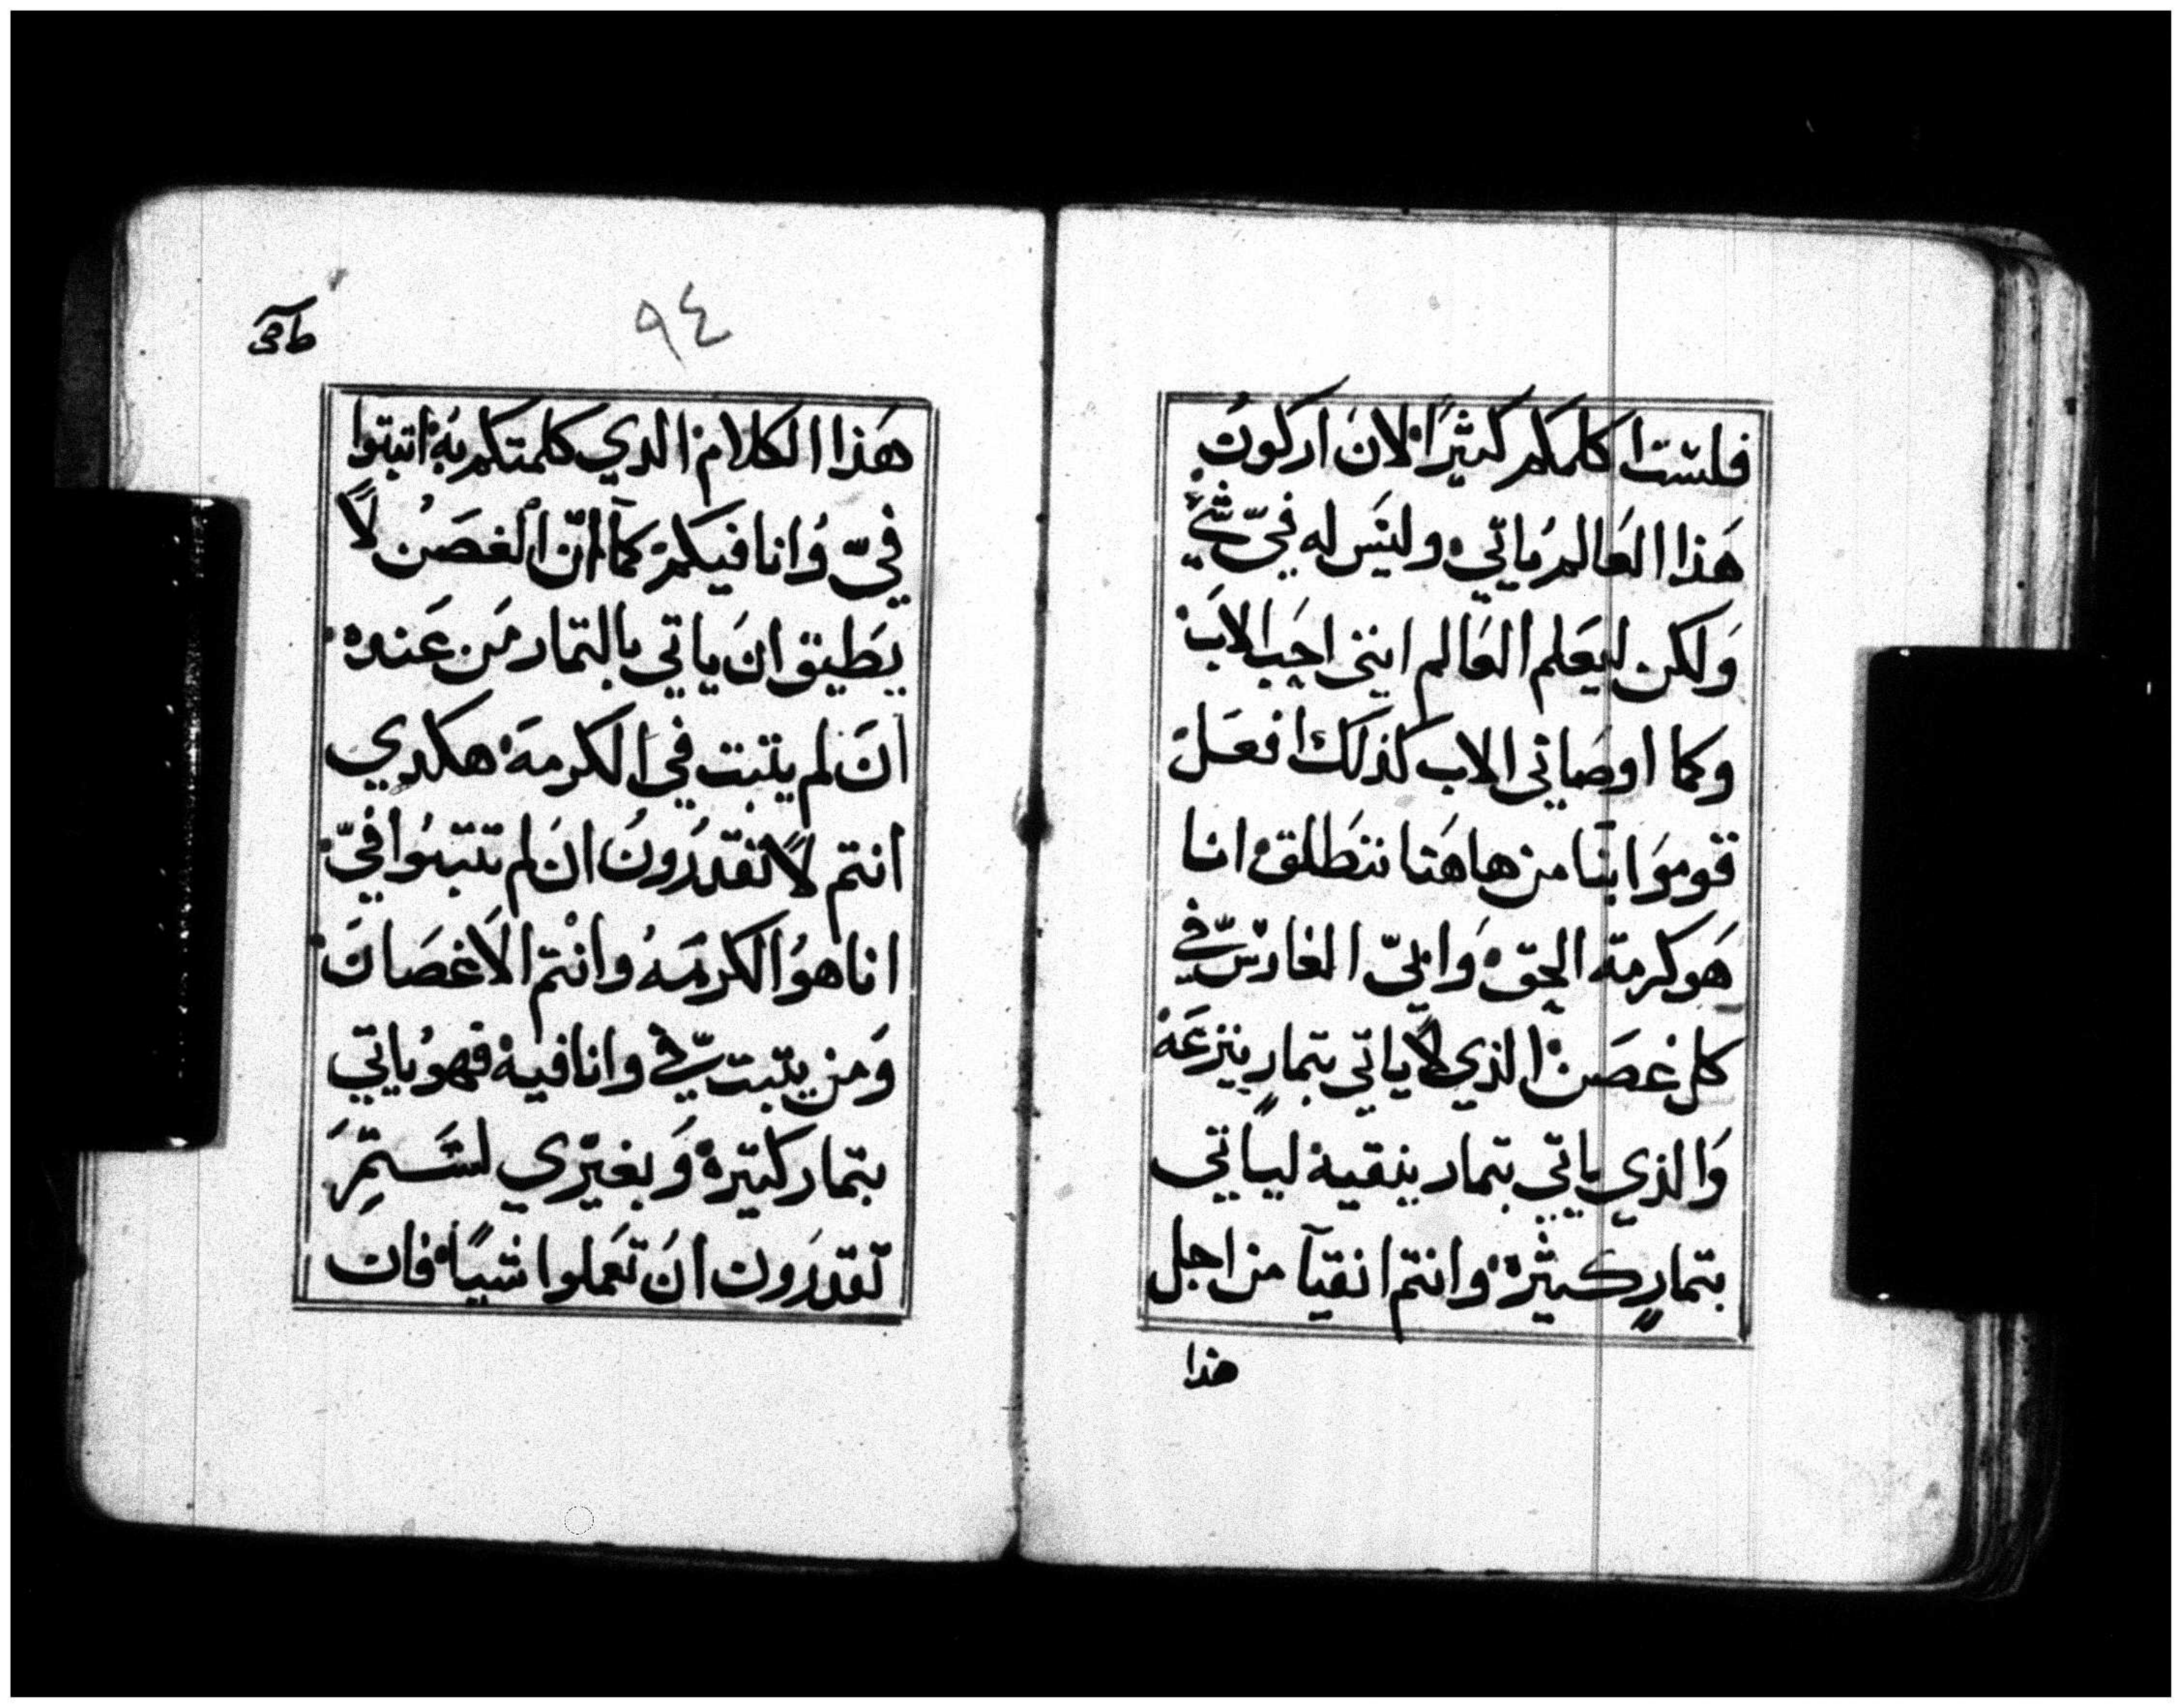 فلست اكلمكم كثيرًا لان اركون
هَذا العَالم يُاتي وليَس له فيّ شيّ
وَلكن ليعَلم العَالم انني احَب الابَ
وكما اوصَاني الاب كذلَك افعَل
قومَوا بنا من هاهَنا ننطَلق انا
هَو كرمة الحق وَابيّ الغارسّ في
كل غصَن الذي لا ياتي بتمارٍ ينزعَه
وَالذي ياتي بتمار ينقيه لياتي
بتمارٍ كثيرَة وانتم انقيآ من اجل
هذا
٩٤
هَذا الكلام الدي كلمتكم به اتبتوا
فيّ وُانا فيكم كما انّ الغصَن لا
يطَيق انَ ياتي بالتمار مَن عَنده
انَ لم يتبت في الكرمَة هكدي
انتم لا تقدرَونُ انَ لم تتبتوُا فيّ
انا هوُ الكرمَه وانتم الاغصَانَ
وَمن يتبت فيّ وانا فيه فهوُ ياتي
بتمار كتيره وَبغيرّي لستمَ
تقدرَون انَ تعَملوا شيئًا فان